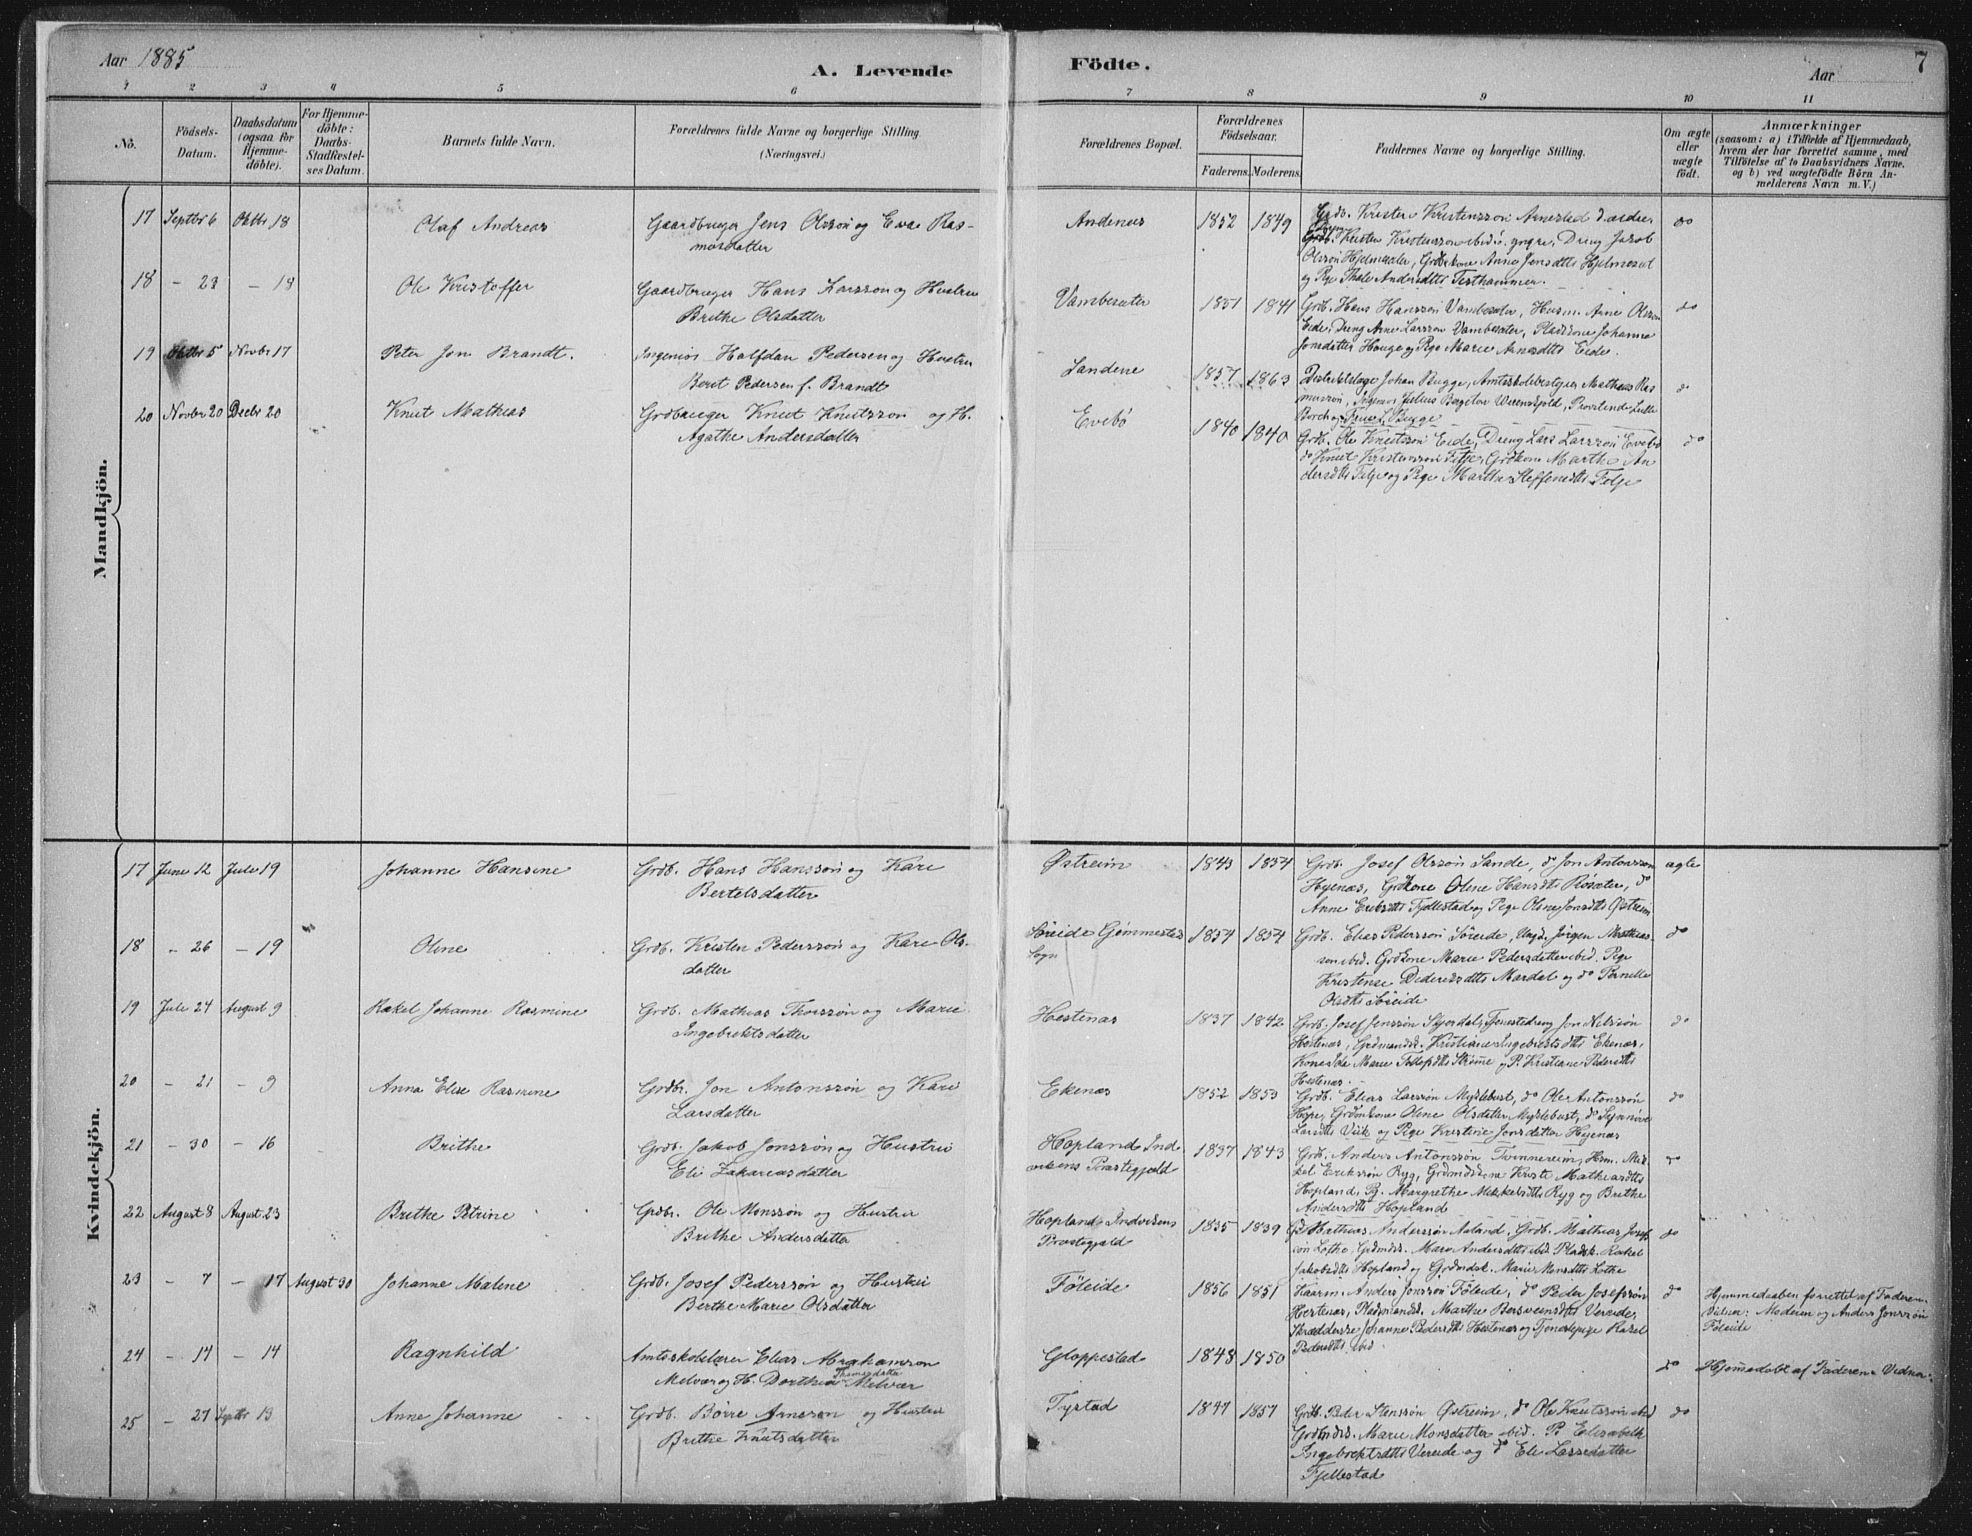 Aar 1885
A. Levende Födte.
Aar 7
1 2 3 4 5 6 7 8 9 10 11
No. Födsels-Datum. Daabsdatum (ogsaa for Hjemmedöbte). For Hjemmedöbte: Daabs-Stadfestelses Datum. Barnets fulde Navn. Forældrenes fulde Navne og borgerlige Stilling. (Næringsvei.) Forældrenes Bopæl. Forældrenes Födselsaar. Faderens. Moderens. Faddernes Navne og borgerlige Stilling. Om ægte eller uægte födt. Anmærkninger
(saasom: a) i Tilfælde af Hjemmedaab,
hvem der har forrettet samme, med
Tilföielse af to Daabsvidners Navne.
og b) ved uægtefödte Börn An-
melderens Navn m. V.)
Mandkjön.
17 Septbr 6 Oktbr 18 Olaf Andreas Gaardbruger Jens Olssøn og Eva Ras-
musdatter
Andenæs 1852 1849 Grdb. Kristen Kristenssøn Arnestad d. ældre,
Grdb. Kristen Kristenssøn ibid. yngre, Dreng Jakob
Olssøn Hjelmeseter, Grdbkone Anne Jensdtr Hjelmeset
og Pge Thale Andersdtr Testhammer. do
18 - 23 - 18 Ole Kristoffer Gaardbruger Hans Larssøn og Hustru
Brithe Olsdatter
Vambesæter 1851 1841 Grdb. Hans Hanssøn Vambesæter, Husm. Arne Olssøn
Eide, Dreng Arne Larssøn Vambesæter, Pladskone Johanne
Jonsdatter Hauge og Pge Marie Arnesdtr Eide. do
19 Oktbr 5 Novbr 17 Peter Jon Brandt. Ingeniør Halfdan Pedersen og Hustru
Berit Pedersen f. Brandt
Sandene 1857 1863 Distriktslæge Johan Bugge, Amtsskolebestyrer Mathias Ras-
mussøn, Ingeniør Julius Werenskjold, Provstinde Lulle
Borch og Frue L. Bugge do
20 Novbr 20 Decbr 20 Knut Mathias Grdbruger Knut Knutssøn og H.
Agathe Andersdatter
Evebø 1840 1840 Grdb. Ole Knutssøn Eide, Dreng Lars Larssøn Evebø
do Knut Kristenssøn Fitje, Grdkone Marthe An
dersdtr Fitje og Pige Marthe Steffensdtr Fitje do
Kvindekjön.
17 Juni 12 Juli 19 Johanne Hansine Grdb. Hans Hanssøn og Kari
Bertelsdatter
Østreim 1843 1854 Grdb. Josef Olssøn Sande, do Jon Antonssøn
Hyenæs, Grdkone Oline Hansdtr Røsæter, do
Anne Eriksdtr Fjellestad og Pge Oline Jonsdtr Østreim ægte
18 - 26 - 19 Oline Grdb. Kristen Pederssøn og Kari Ols-
datter
Søreide Gimmestad
Sogn 1854 1854 Grdb. Elias Pederssøn Søreide, Ungk. Jørgen Mathias-
søn ibid. Grdkone Marie Pedersdatter ibid. Pge
Kristense Dideriksdtr Mardal og do Pernille
Olsdtr Søreide do
19 Juli 24 August 9 Rakel Johanne Rasmine Grdb. Mathias Thorssøn og Marie
Ingebrektsdatter
Hestenæs 1837 1842 Grdb. Josef Jenssøn Skjerdal, Tjenestedreng Jon Nilssøn
Hestenæs, Grdmandsk. Kristiane Ingebrektsdtr Ekenæs,
Kone Ida Marie Tollefsdtr Strømme og P. Kristiane Pedersdtr
Hestenæs. do
20 - 21 - 9 Anna Elise Rasmine Grdbr. Jon Antonssøn og Kari
Larsdatter
Ekenæs 1852 1853 Grdb. Elias Larssøn Myklebust, do Ole Antonssøn
Hope, Grdmkone Oline Olsdatter Myklebust, do Synnive
Larsdtr Vik og Pge Kristine Jonsdatter Hyenæs do
21 - 30 - 16 Brithe Grdb. Jakob Jonssøn og Hustru
Eli Zakariasdatter
Hopland Ind
vikens Præstegjæld 1837 1843 Grdb. Anders Antonssøn Tvinnereim, Hsm. Mik-
kel Erikssøn Ryg, Grdmdskone Kristi Mathiasdtr
Hopland, Pg. Margrethe Mikkelsdtr Ryg og Brithe
Andersdtr Hopland do
22 August 8 August 23 Brithe Petrine Grdbr. Ole Monssøn og Hustru
Brithe Andersdatter
Hopland Indvikens
Præstegjæld 1835 1839 Grd. Mathias Anderssøn Aaland, Grdb. Mathias Josef-
søn Lothe, Grdmdsk. Mari Andersdtr ibid Pladsk. Rakel
Jakobsdtr Hopland og Grdmdsk. Marie Monsdtr Lothe do
23 - 7 - 17 August 30 Johanne Malene Grdb. Josef Pederssøn og Hustru
Berthe Marie Olsdatter
Føleide 1856 1851 Kaarm. Anders Jonssøn Føleide, do Peder Josefssøn
Hestenæs, Pladsmandsk. Marthe Bersveinsdtr Vereide,
Skrædderske Johanne Pedersdtr Hestenæs og Tjenestepige Rakel
Pedersdtr ibid do Hjemmedaaben forrettet af Faderen.
Vidner: Moderen og Anders Jonssøn
Føleide
24 - 14 - 14 Ragnhild Amtsskolelærer Elias Abrahamsøn
Melvær og H. Dorthea Thomasdatter Melvær
Gloppestad 1848 1850 do Hjemmedøbt af Faderen. Vidner:
25 - 27 Septbr 13 Anne Johanne Grdb. Børre Arnessøn og Hustru
Brithe Knutsdatter
Tystad 1847 1857 Grdb. Peder Stenssøn Østreim, do Ole Knutssøn ibid
Grdmdsk. Marie Monsdatter ibid. P. Elisabeth
Ingebrektsdtr Vereide og do Eli Lassedatter
Fjellestad do